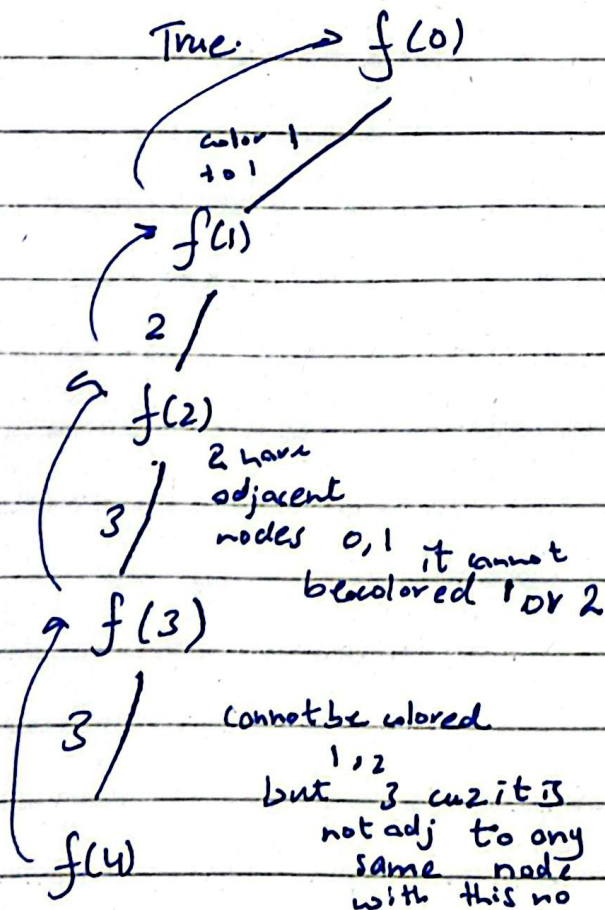 True. f(0)
color 1
to 1
f(1)
2
f(2)
2 have
adjacent
nodes 0,1 it cannot
becolored 1 or 2
3
f(3)
3
connot be colored
1,2
but 3 cuz it is
not adj to any
same node
with this no
f(4)